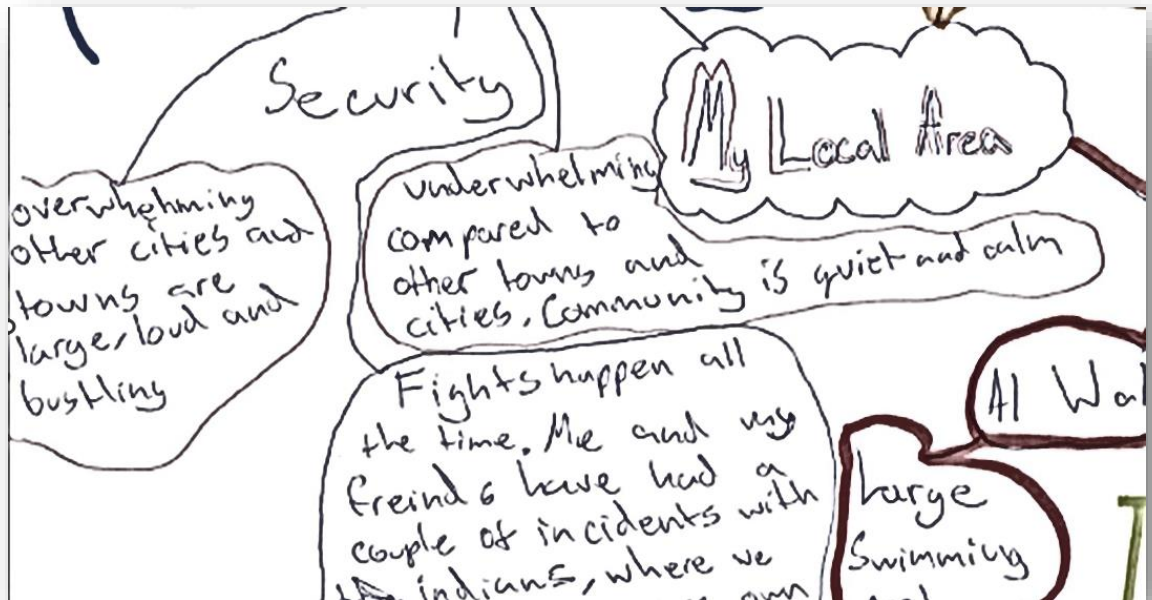 Security
My Local Area
overwhehming
other cities and
towns are
large, loud and
bustling
underwhelming
compared to
other towns and
cities. Community is quiet and calm
Fights happen all
the time. Me and my
freinds have had a
couple of incidents with
indians, where we
own
Al Wa
Large
Swimming